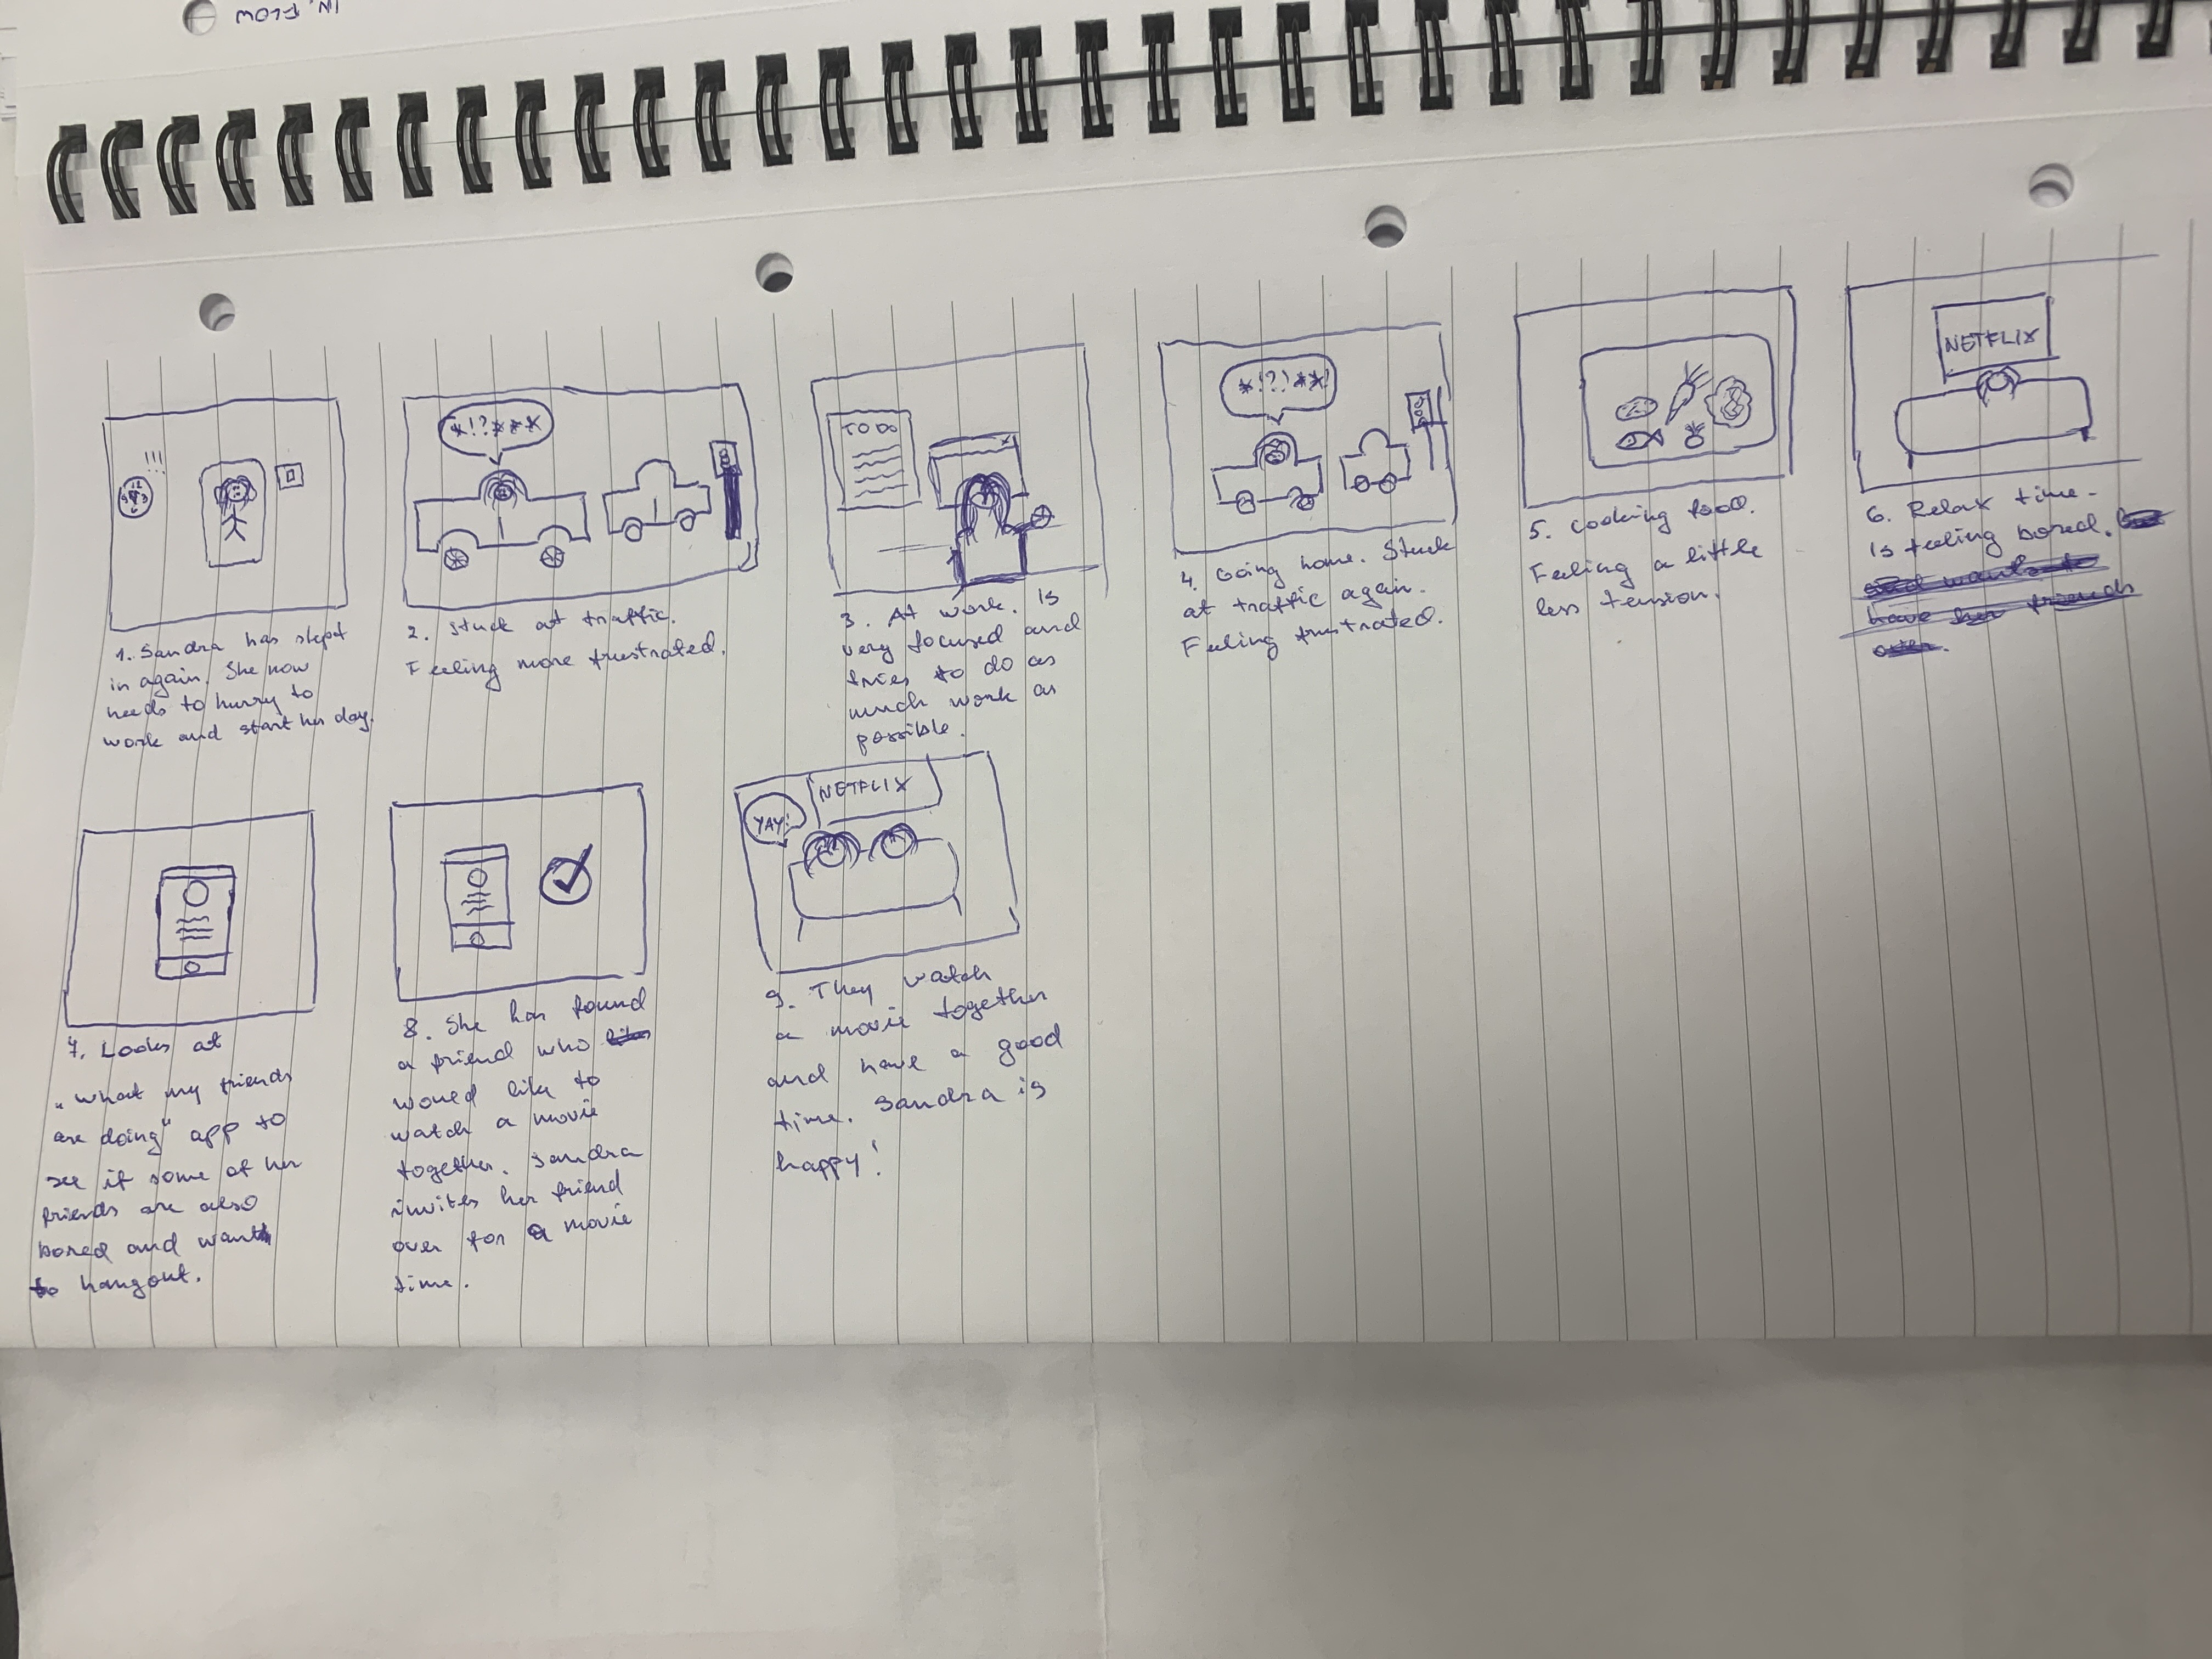 IN. FLOW
!!!
12
9 3
1. Sandra has slept
in again. She now
needs to hurry to
work and start her day.
*!?***
2. Stuck at traffic.
Feeling more frustrated.
TO DO
3. At work. Is
very focused and
tries to do as
much work as
possible.
*!?!**!
4. Going home. Stuck
at traffic again.
Feeling frustrated.
5. Cooking food.
Feeling a little
less tension.
NETFLIX
6. Relax time.
Is feeling bored.
and wants to
have her friends
over.
7. Looks at
"What my friends
are doing" app to
see if some of her
friends are also
bored and want
to hangout.
8. She has found
a friend who likes
would like to
watch a movie
together. Sandra
invites her friend
over for a movie
time.
YAY!
NETFLIX
9. They watch
a movie together
and have a good
time. Sandra is
happy!